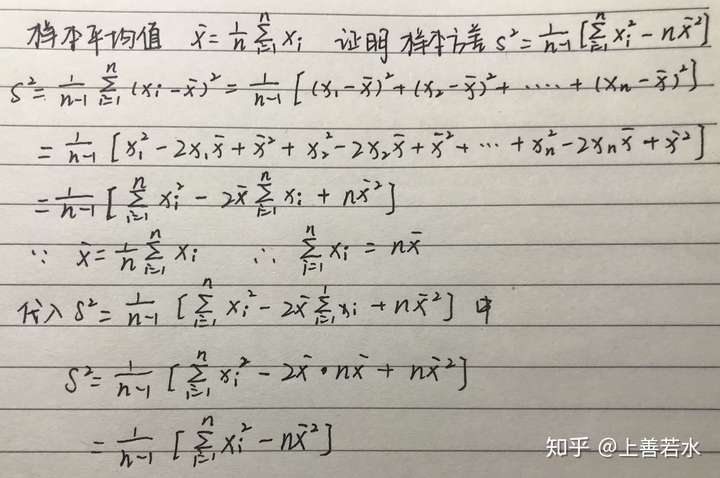 样本平均值 x̄ = 1/n ∑_{i=1}^{n} xᵢ 证明 样本方差 S² = 1/(n-1) [∑_{i=1}^{n} xᵢ² - nx̄²]
S² = 1/(n-1) ∑_{i=1}^{n} (xᵢ - x̄)² = 1/(n-1) [(x₁ - x̄)² + (x₂ - x̄)² + ····· + (xₙ - x̄)²]
= 1/(n-1) [x₁² - 2x₁x̄ + x̄² + x₂² - 2x₂x̄ + x̄² + ··· + xₙ² - 2xₙx̄ + x̄²]
= 1/(n-1) [∑_{i=1}^{n} xᵢ² - 2x̄ ∑_{i=1}^{n} xᵢ + nx̄²]
∵ x̄ = 1/n ∑_{i=1}^{n} xᵢ ∴ ∑_{i=1}^{n} xᵢ = nx̄
代入 S² = 1/(n-1) [∑_{i=1}^{n} xᵢ² - 2x̄ ∑_{i=1}^{n} xᵢ + nx̄²] 中
S² = 1/(n-1) [∑_{i=1}^{n} xᵢ² - 2x̄ · nx̄ + nx̄²]
= 1/(n-1) [∑_{i=1}^{n} xᵢ² - nx̄²]
知乎 @上善若水